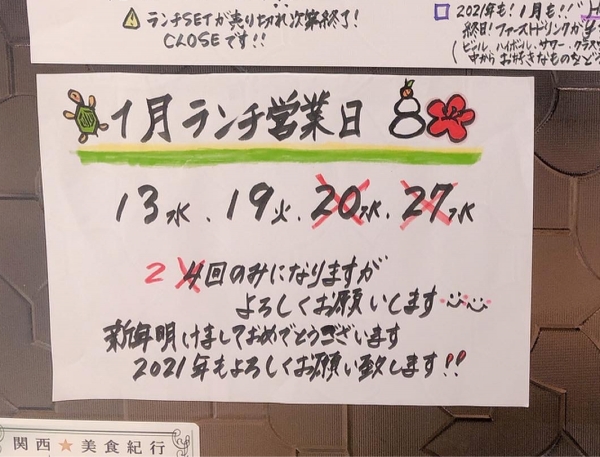 ランチSETが売り切れ次第終了!
CLOSEです!!
2021年も!1月も!!
終日!ファーストドリンクが
(ビール、ハイボール、サワー、グラス
中からお好きなものをど
1月ランチ営業日
13水、19火、20水、27水
2 4回のみになりますが
よろしくお願いします
新年明けましておめでとうございます
2021年もよろしくお願い致します!!
関西★美食紀行